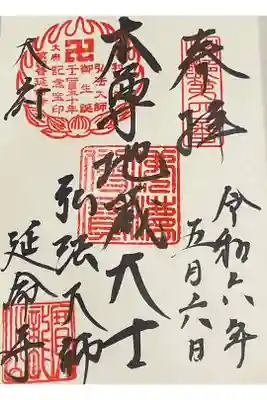 奉拝
令和六年
五月六日
本尊地蔵大士
弘法大師
大府
延命寺
弘法大師
御生誕
千二百五十年
記念宝印